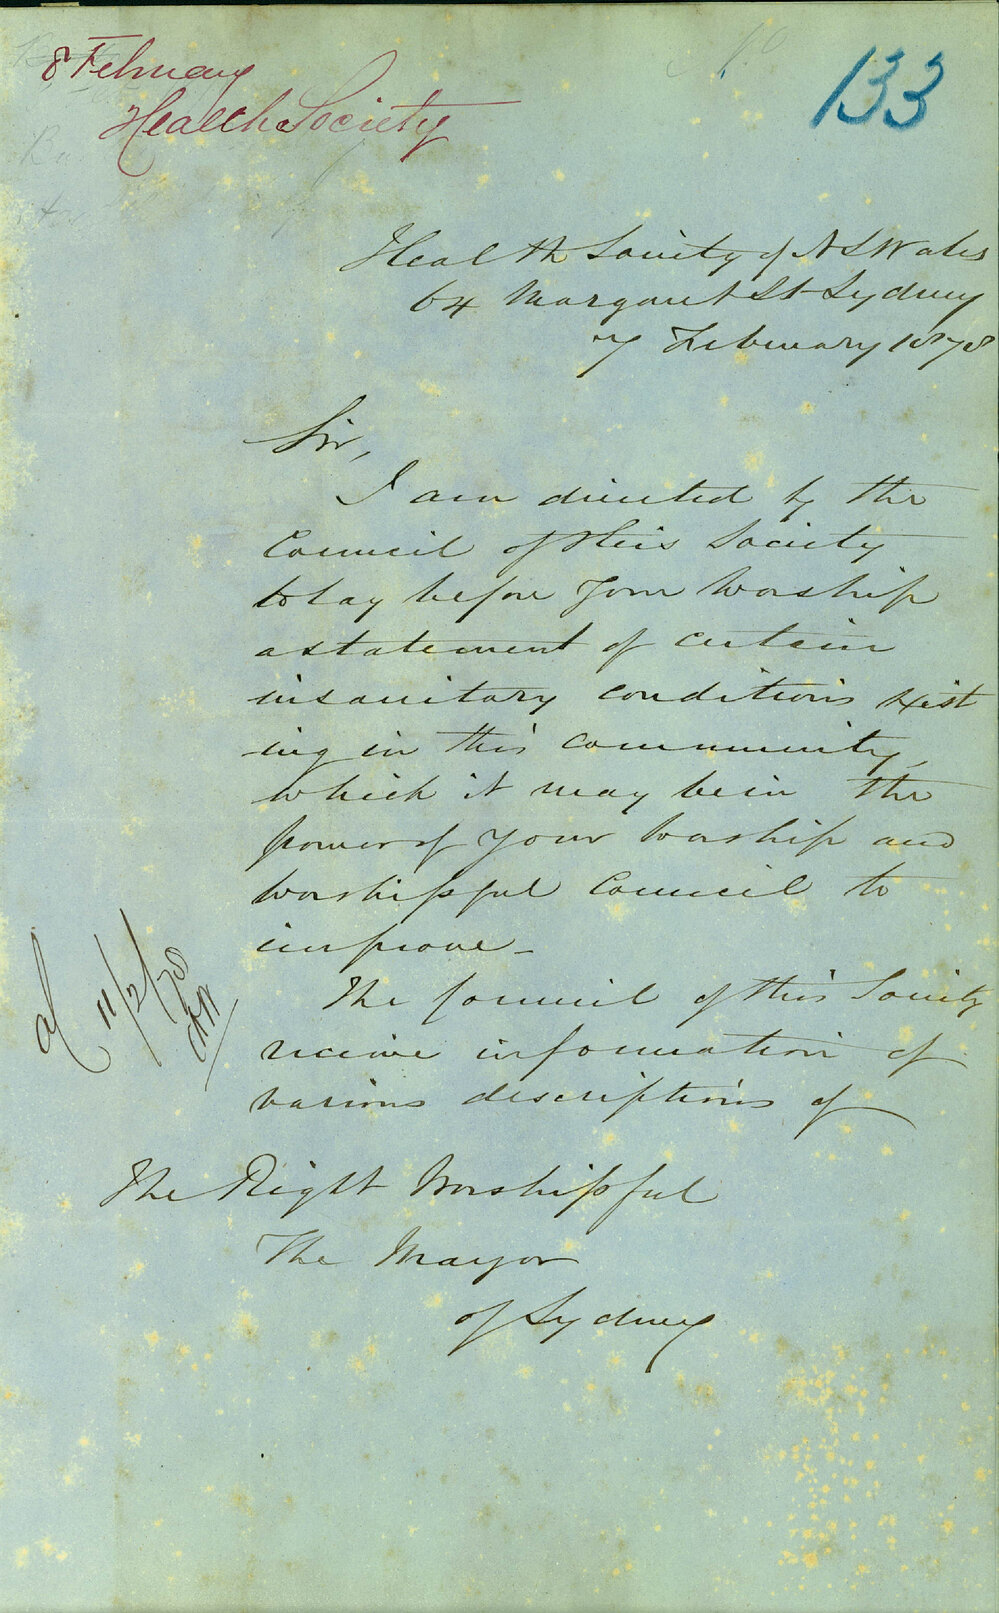 8 February
Health Society
133
Health Society of N S Wales
64 Margaret St Sydney
7 February 1878
Sir,
I am directed by the
Council of this Society
to lay before Your Worship
a statement of certain
insanitary conditions exist
ing in this community,
which it may be in the
power of Your Worship and
Worshipful Council to
improve -
The Council of this Society
receive information of
various descriptions of
11/2/78
The Right Worshipful
The Mayor
of Sydney